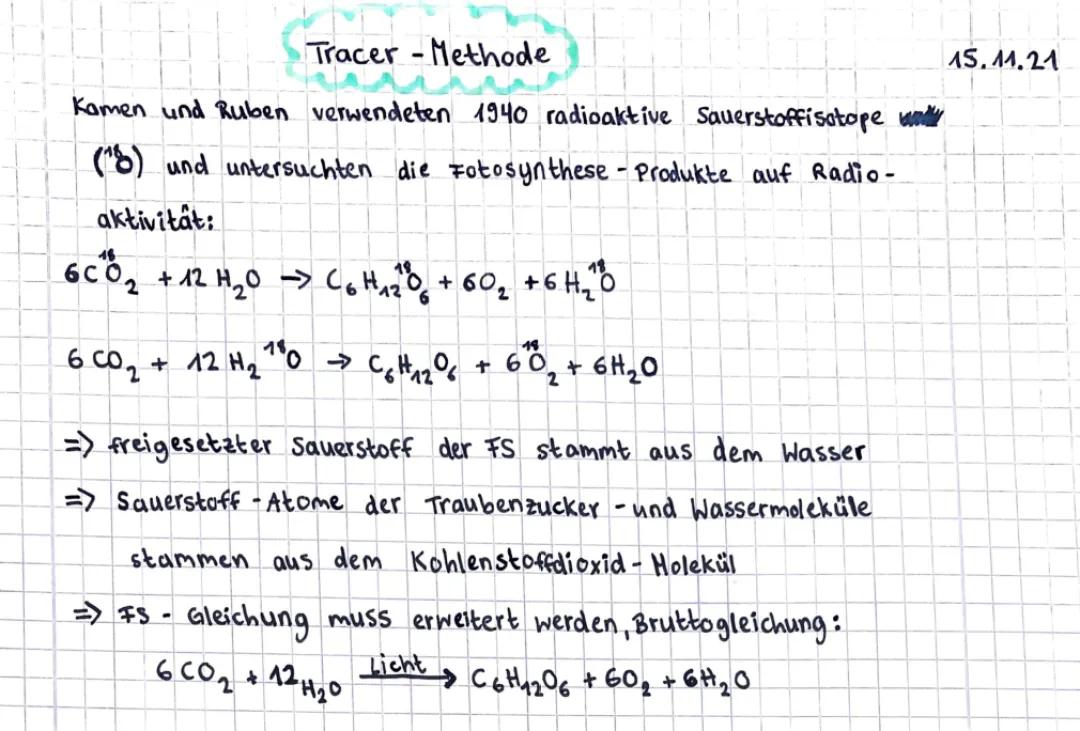 Tracer - Methode
15.11.21
Kamen und Ruben verwendeten 1940 radioaktive Sauerstoffisotope
(¹⁸O) und untersuchten die Fotosynthese - Produkte auf Radio-
aktivität:
6C¹⁸O₂ + 12 H₂O → C₆H₁₂¹⁸O₆ + 6O₂ + 6H₂¹⁸O
6 CO₂ + 12 H₂¹⁸O → C₆H₁₂O₆ + 6¹⁸O₂ + 6H₂O
=> freigesetzter Sauerstoff der FS stammt aus dem Wasser
=> Sauerstoff - Atome der Traubenzucker - und Wassermoleküle
stammen aus dem Kohlenstoffdioxid - Molekül
=> FS - Gleichung muss erweitert werden, Bruttogleichung:
6 CO₂ + 12 H₂O Licht → C₆H₁₂O₆ + 6O₂ + 6H₂O